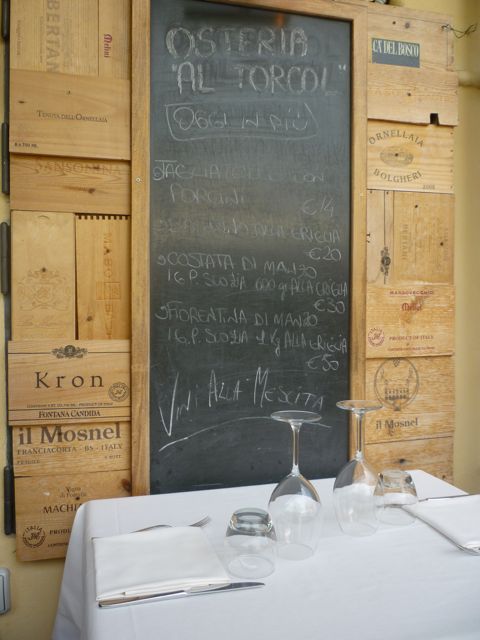 OSTERIA
"AL TORCOL"
OGGI IN PIÙ
TAGLIATELLE CON
PORCINI
€14
ALLA GRIGLIA
€20
COSTATA DI MANZO
I G.P. SCOZIA 600 g ALLA GRIGLIA
€30
FIORENTINA DI MANZO
I G.P. SCOZIA 1 Kg ALLA GRIGLIA
€50
VINI ALLA MESCITA
BERTANI
TENUTA DELL'ORNELLAIA
SANSONINA
Kron
FONTANA CANDIDA
il Mosnel
FRANCIACORTA - BS - ITALY
ITALIA
CA' DEL BOSCO
ORNELLAIA
BOLGHERI
2008
BERTANI
Melini
PRODUCT OF ITALY
il Mosnel